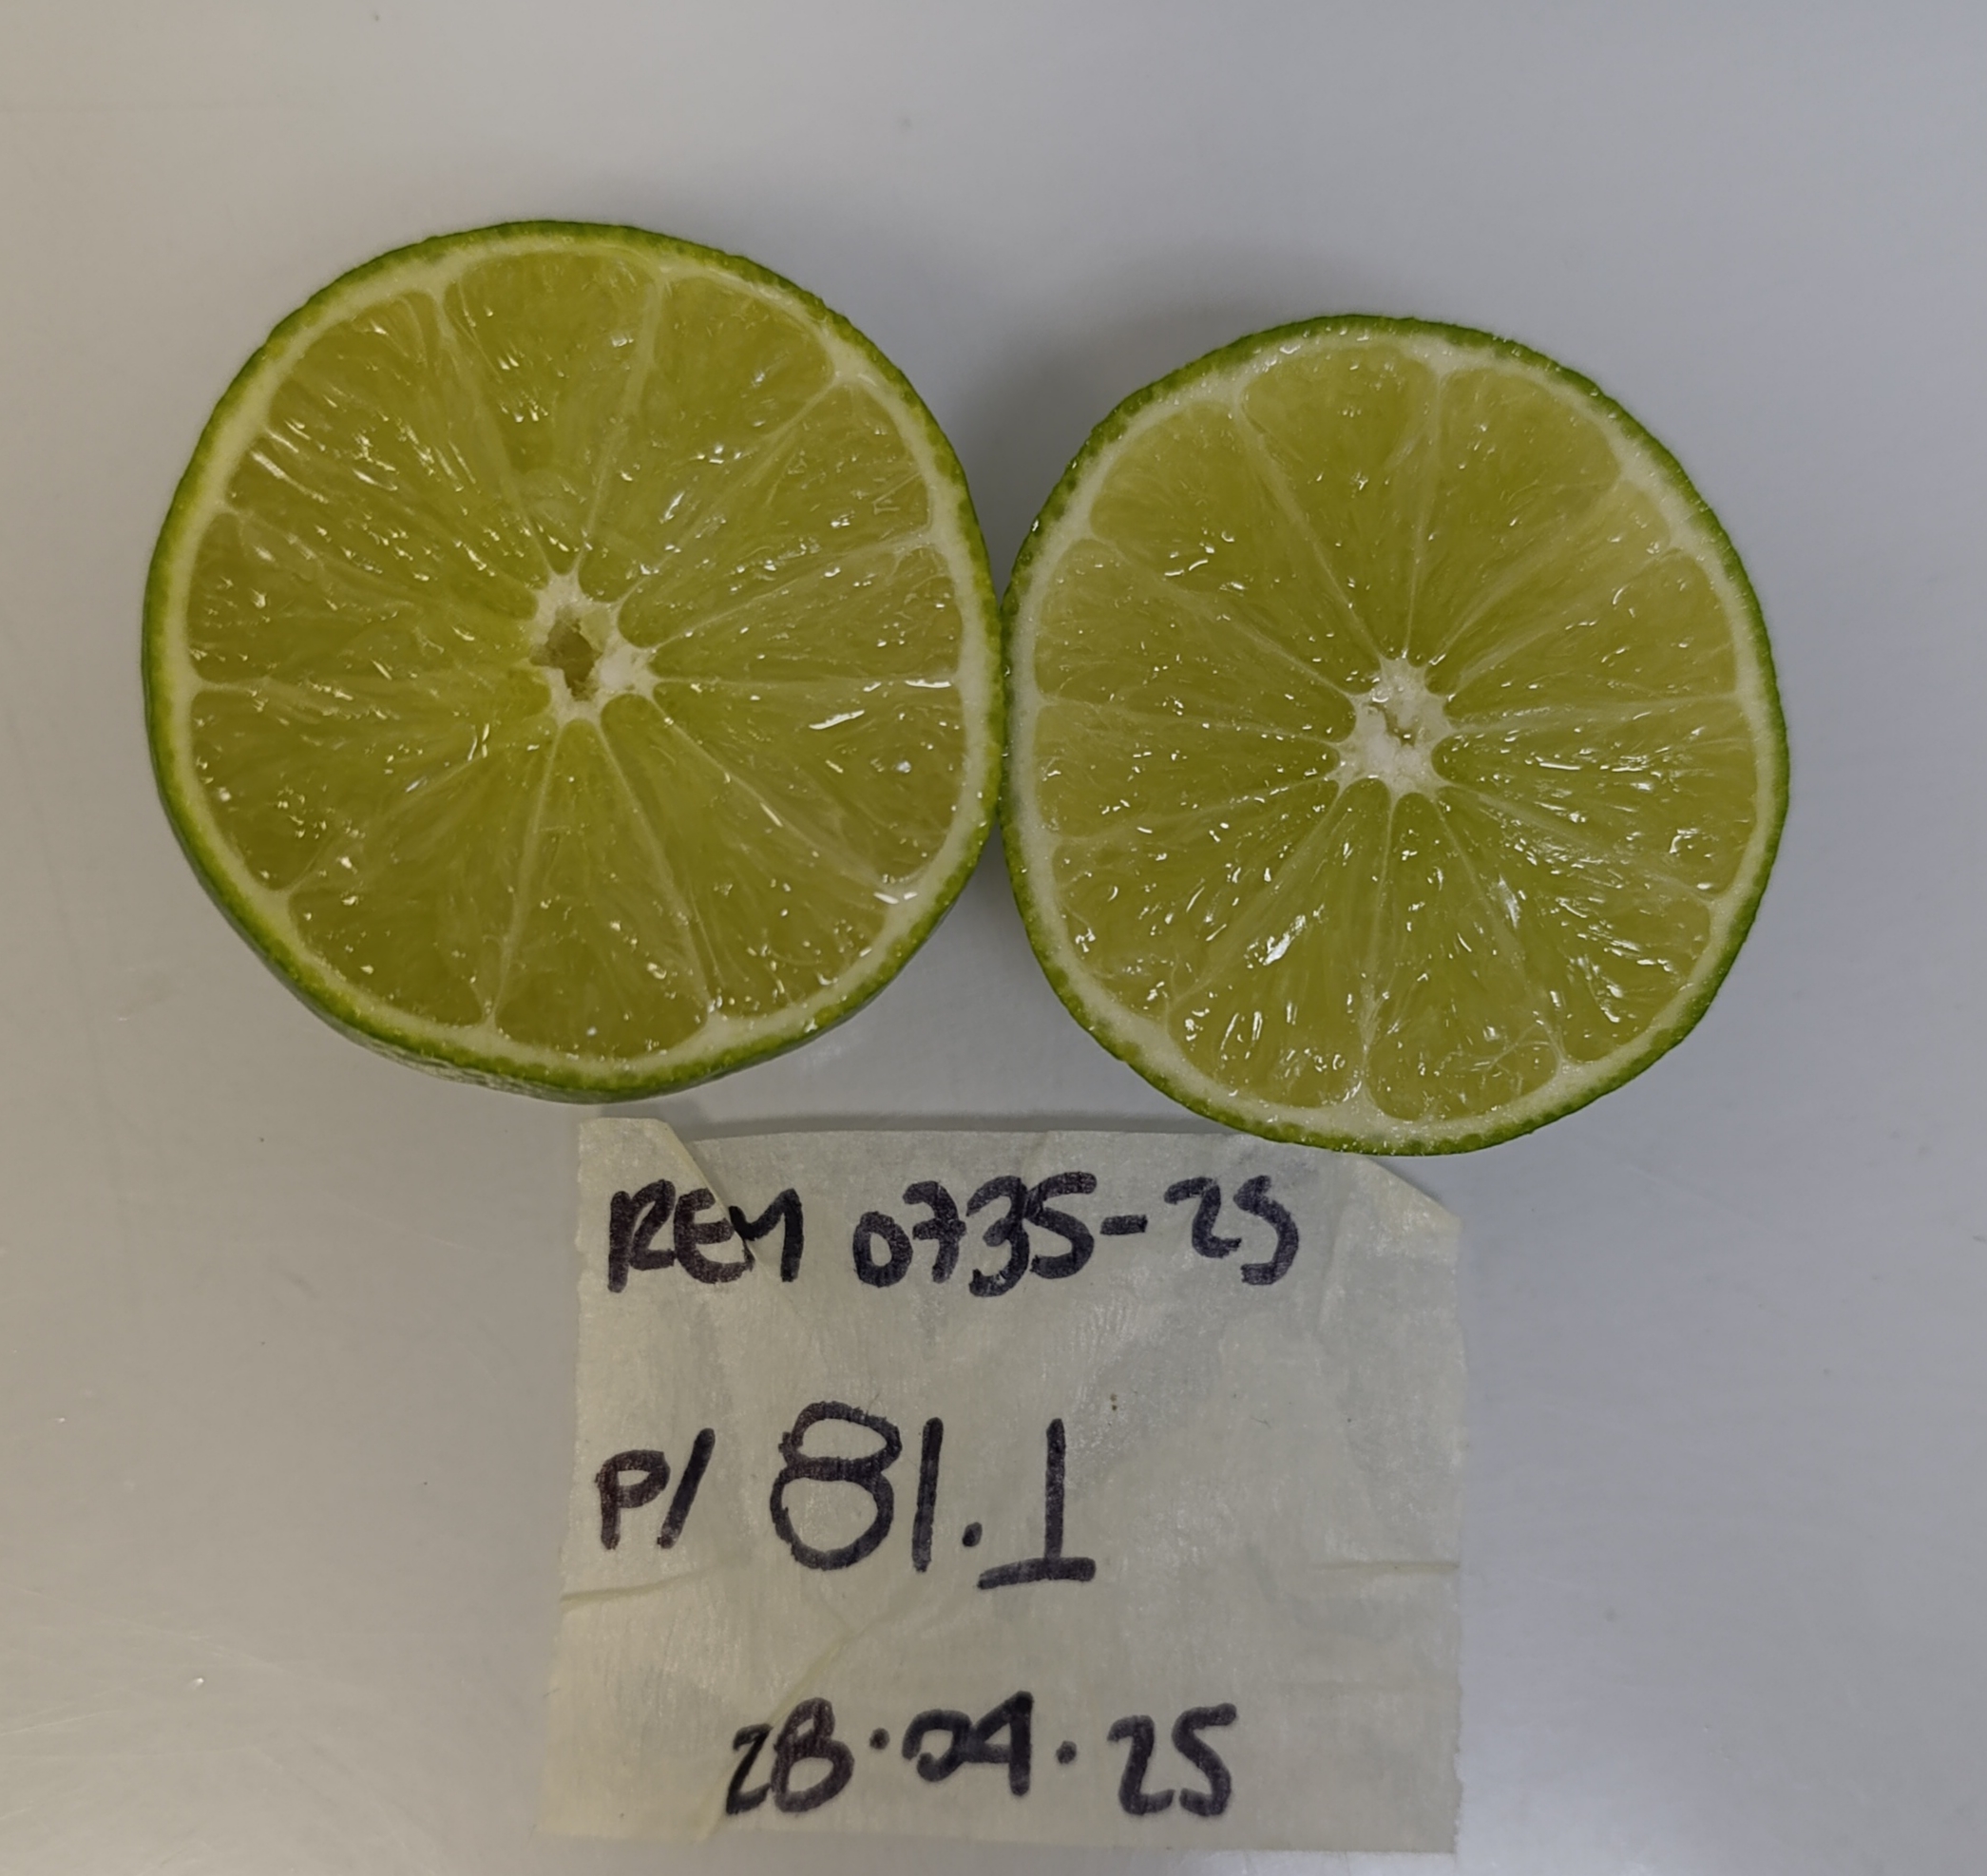 REM 0735-25
P/ 81.1
28.04.25